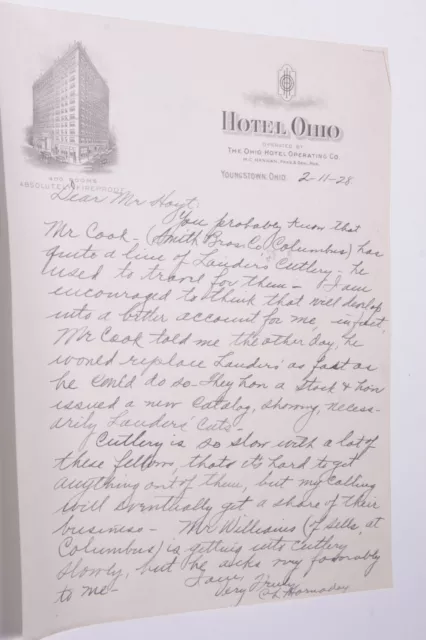 HOTEL OHIO
OPERATED BY
THE OHIO HOTEL OPERATING CO.
YOUNGSTOWN, OHIO. 2-11-28
400 ROOMS
ABSOLUTELY FIREPROOF
Dear Mr Hoyt:
You probably know that
Mr Cook - (Smith Bros. Co. Columbus) has
quite a line of Landers Cutlery - he
used to travel for them - I am
encouraged to think that will develop
into a better account for me, in fact,
Mr Cook told me the other day, he
would replace Landers' as fast as
he could do so. They hav a stock & hav
issued a new Catalog, showing, necess-
arily Landers' cuts -
Cutlery is so slow with a lot of
these fellows, thats its hard to get
anything out of them, but my calling
will eventually get a share of their
business - Mr Williams (of Sells, at
Columbus) is getting into cutlery
slowly, but he acks very favorably
to me -
Very Truly